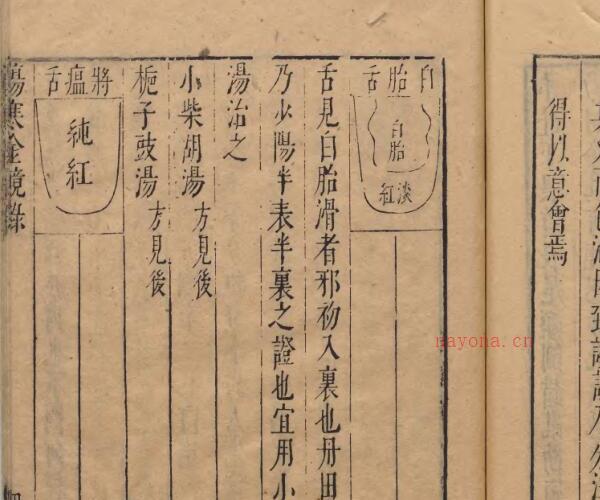 得以意會焉
白胎舌
白胎
淡紅
舌見白胎滑者邪初入裏也丹田
乃少陽半表半裏之證也宜用小
湯治之
小柴胡湯方見後
梔子豉湯方見後
將瘟舌
純紅
傷寒金鏡錄
nayona.cn